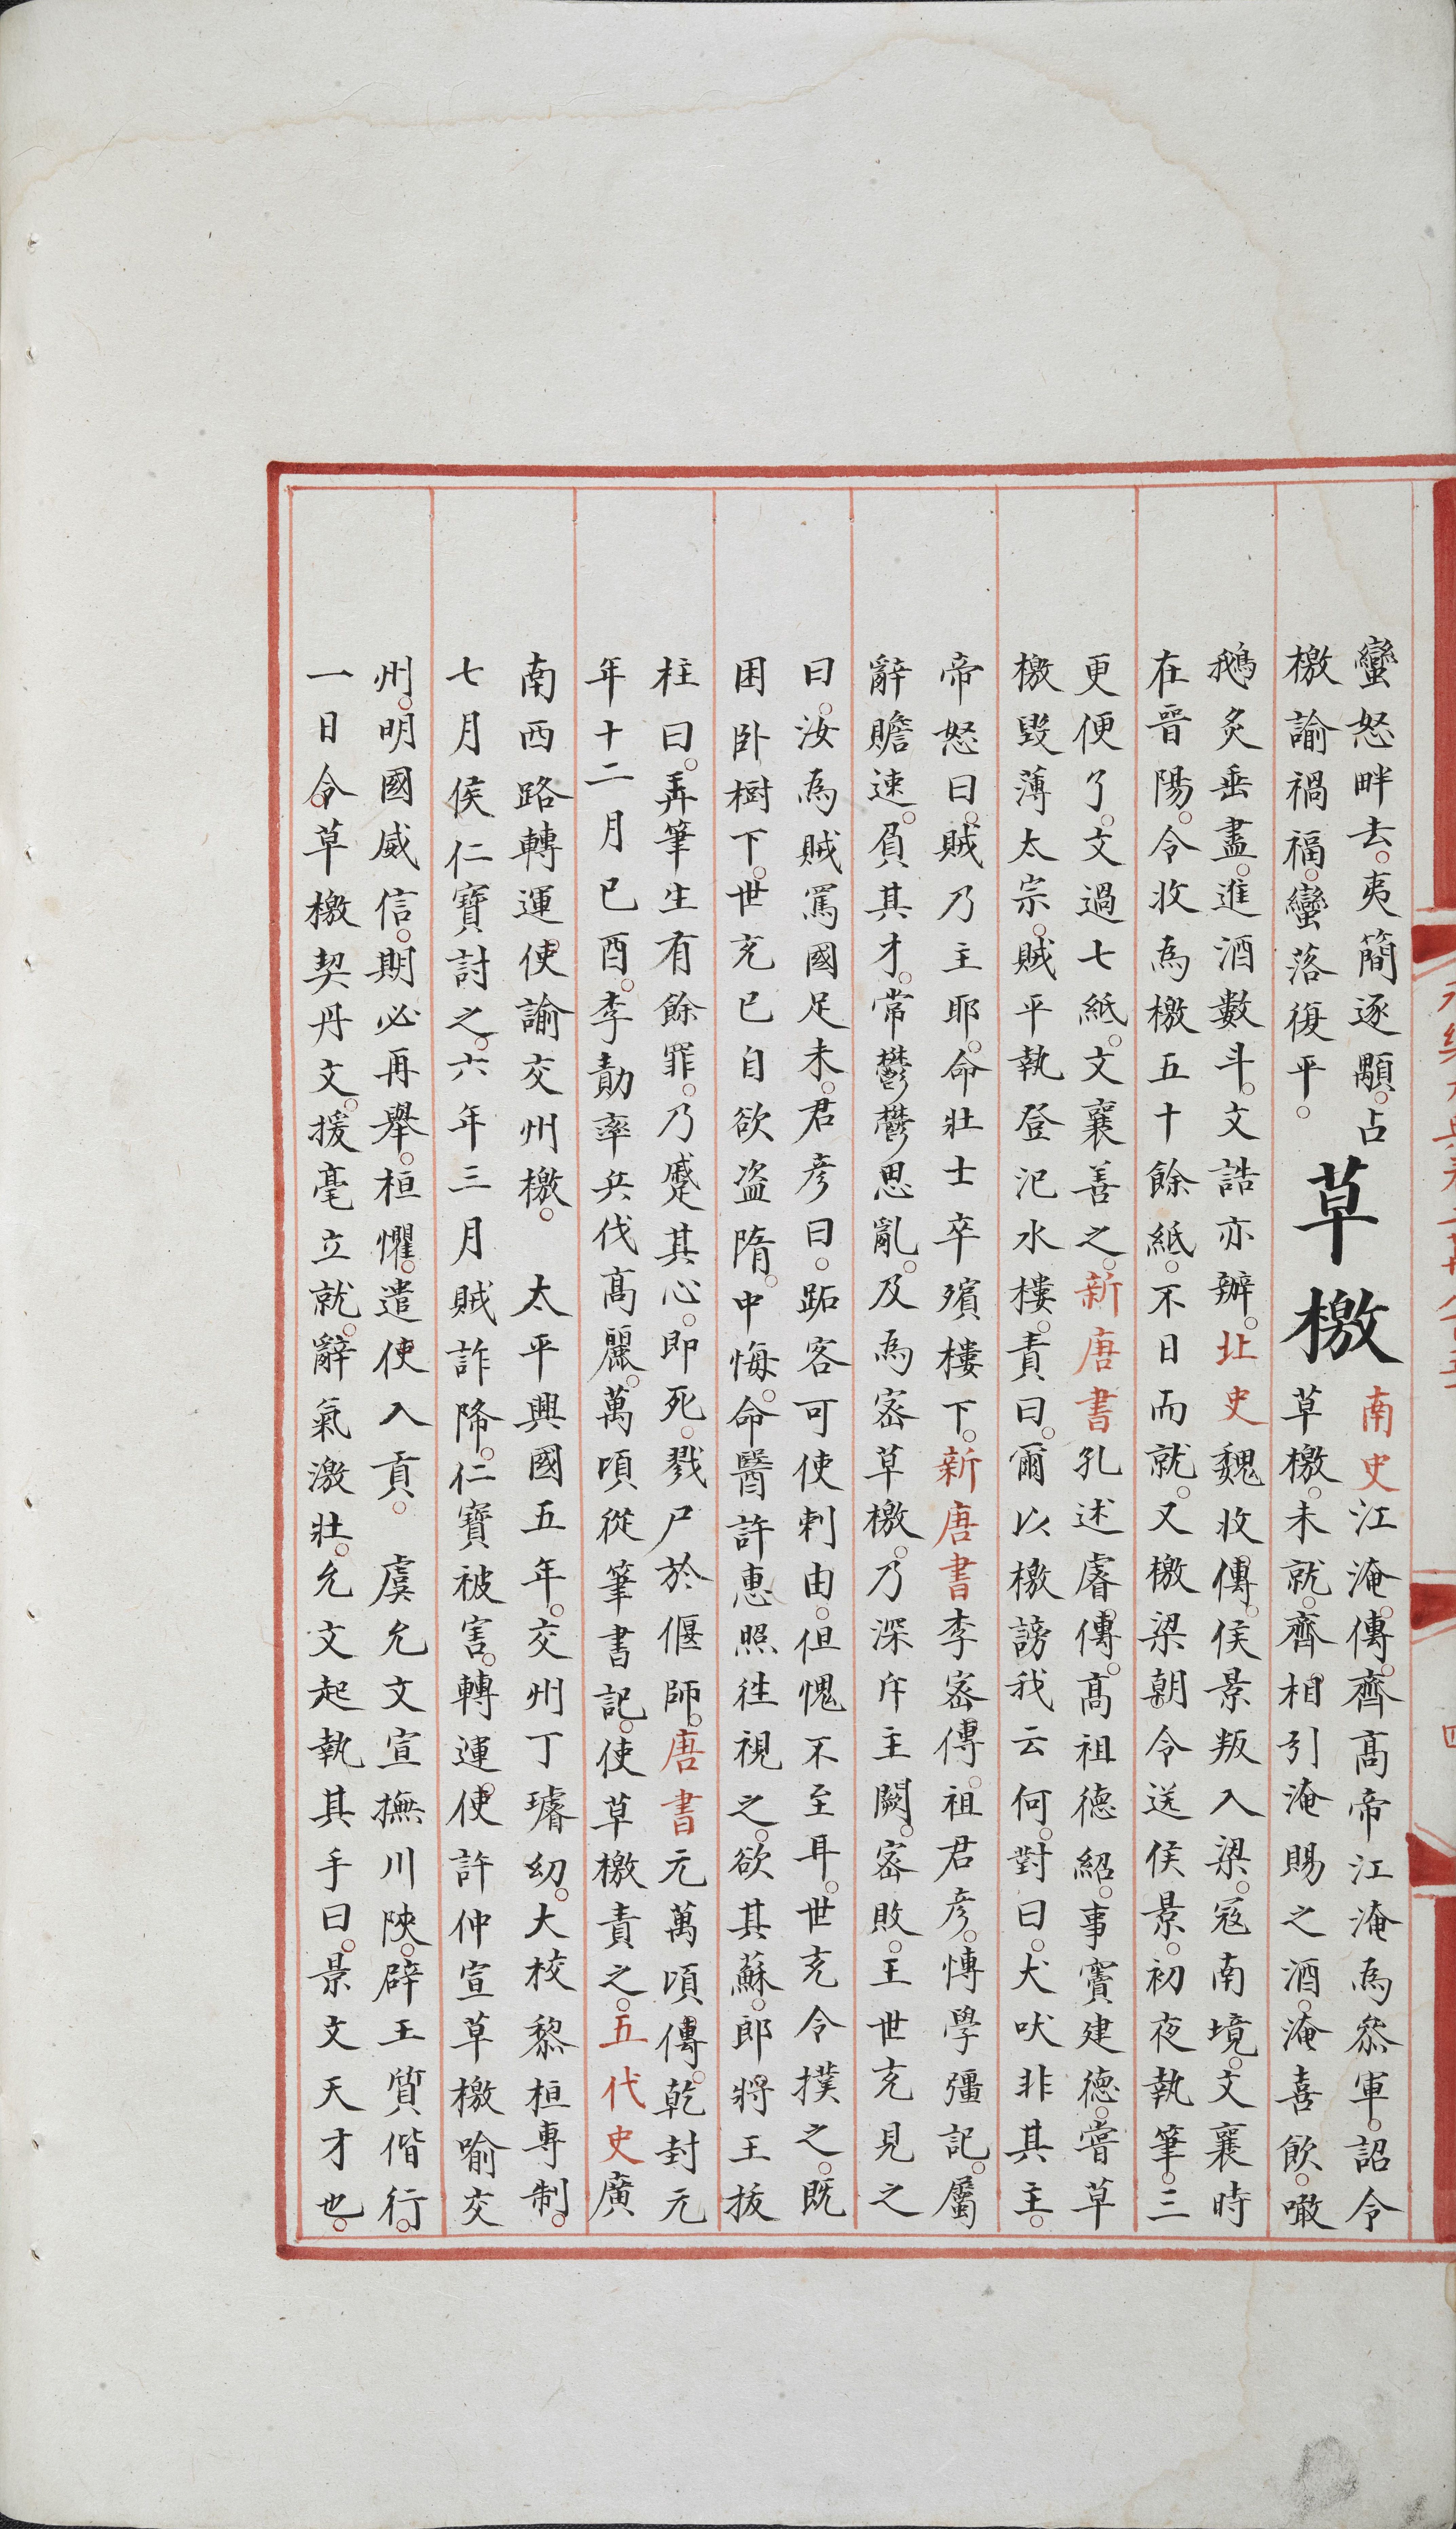 蠻怒畔去夷簡逐顒占
檄諭禍福蠻落復平
草檄
南史江淹傳齊高帝江淹為叅軍詔令
草檄未就齊相引淹賜之酒淹喜飲噉
鵝炙垂盡進酒數斗文誥亦辦北史魏收傳侯景叛入梁寇南境文襄時
在晉陽令收為檄五十餘紙不日而就又檄梁朝令送侯景初夜執筆三
更便了文過七紙文襄善之新唐書孔述睿傳高祖德紹事竇建德嘗草
檄毀薄太宗賊平執登汜水樓責曰爾以檄謗我云何對曰犬吠非其主
帝怒曰賊乃主耶命壯士卒殯樓下新唐書李密傳祖君彥愽學彊記屬
辭贍速負其才常鬱鬱思亂及為密草檄乃深斥主闕密敗王世充見之
曰汝為賊罵國足未君彥曰跖客可使刺由但愧不至耳世充令撲之既
困卧樹下世充已自欲盗隋中悔命醫許惠照徃視之欲其蘇郎將王拔
柱曰弄筆生有餘罪乃蹙其心即死戮尸於偃師唐書元萬頃傳乾封元
年十二月已酉李勣率兵伐高麗萬頃從筆書記使草檄責之五代史廣
南西路轉運使諭交州檄 太平興國五年交州丁璿幻大校黎桓專制
七月侯仁寶討之六年三月賊詐降仁寶被害轉運使許仲宣草檄喻交
州明國威信期必再舉桓懼遣使入貢 虞允文宣撫川陝辟王質偕行
一日令草檄契丹文援毫立就辭氣激壯允文起執其手曰景文天才也